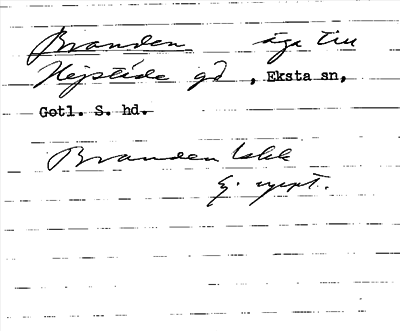 Branden äga till
Hejstäde gd, Eksta sn,
Gotl. S. hd.
Branden
Ej uppt.